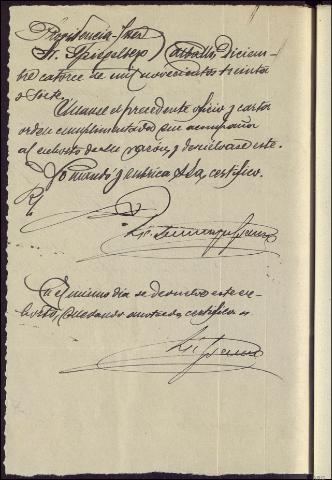 Providencia-Juez
Sr. Spiegelberg) Carballo, Diciem-
bre catorce de mil novecientos treinta
y siete.
Únase el precedente oficio y carta
orden cumplimentada que acompaña
al exhorto de su razón, y devuélvase este.
Lo mandó y rubrica S.Sa, certifico.
En el mismo día se devuelve este ex-
horto, quedando anotado, certifico.=